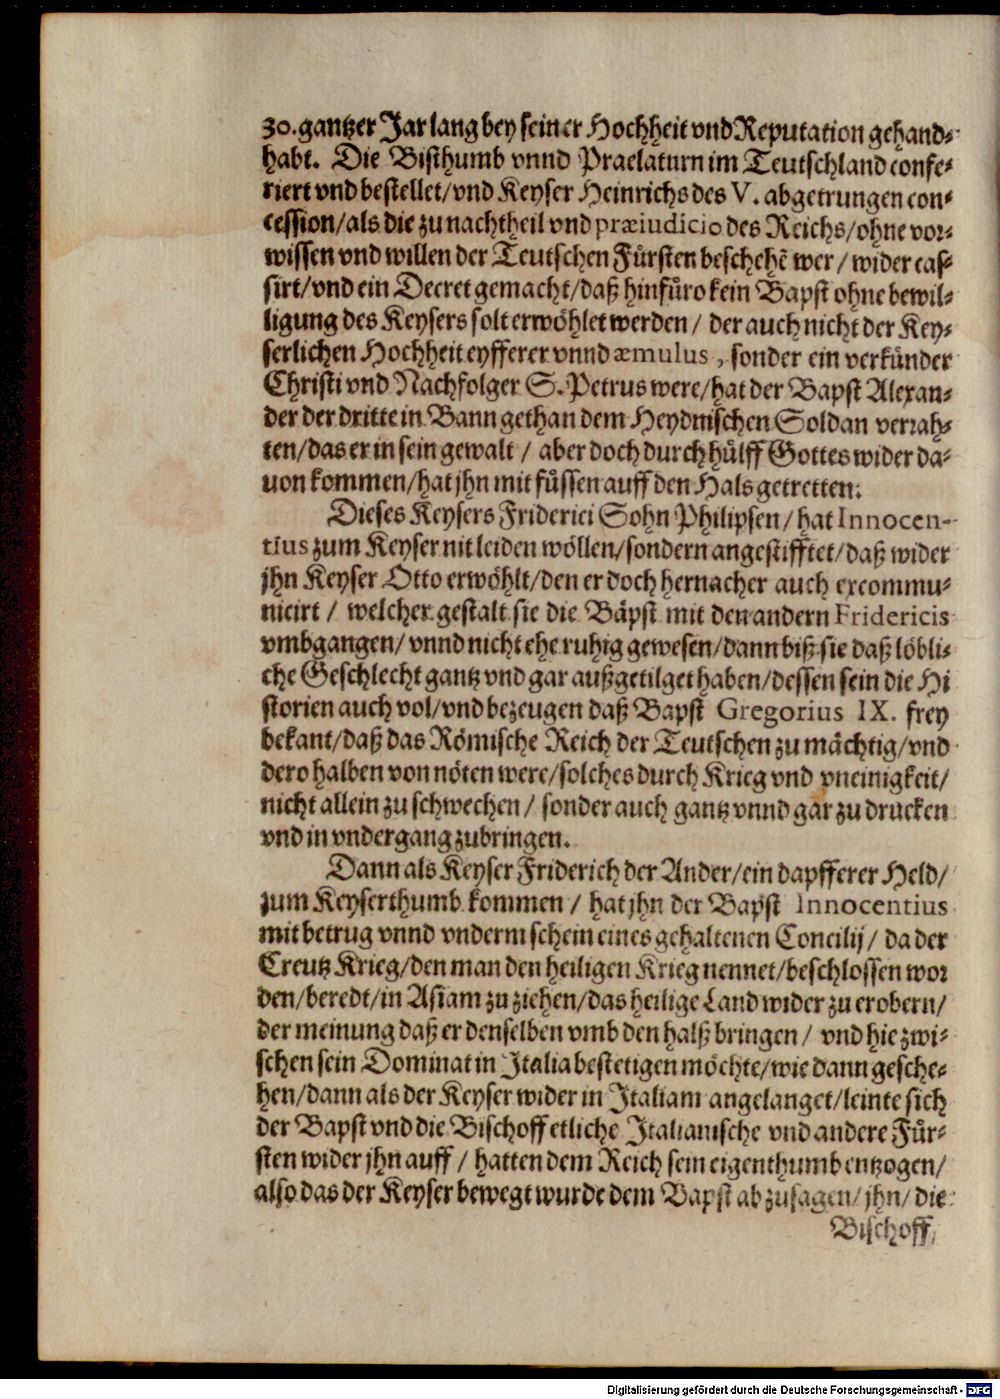 30. gantzer Jar lang bey seiner Hochheit vnd Reputation gehand-
habt. Die Bisthumb vnnd Praelaturn im Teutschland confe-
riert vnd bestellet/vnd Keyser Heinrichs des V. abgetrungen con-
cession/als die zu nachtheil vnd præiudicio des Reichs/ohne vor-
wissen vnd willen der Teutschen Fürsten beschehẽ wer/wider cas-
sirt/vnd ein Decret gemacht/daß hinfüro kein Bapst ohne bewil-
ligung des Keysers solt erwöhlet werden/ der auch nicht der Key-
serlichen Hochheit eyfferer vnnd æmulus, sonder ein verkünder
Christi vnd Nachfolger S. Petrus were/hat der Bapst Alexan-
der der dritte in Bann gethan dem Heydnischen Soldan verrah-
ten/das er in sein gewalt / aber doch durch hülff Gottes wider da-
uon kommen/hat jhn mit füssen auff den Hals getretten.
Dieses Keysers Friderici Sohn Philipsen/ hat Innocen-
tius zum Keyser nit leiden wöllen/sondern angestifftet/daß wider
jhn Keyser Otto erwöhlt/den er doch hernacher auch excommu-
nicirt / welcher gestalt sie die Bäpst mit den andern Fridericis
vmbgangen/vnnd nicht ehe ruhig gewesen/dann biß sie daß löbli-
che Geschlecht gantz vnd gar außgetilget haben/dessen sein die Hi
storien auch vol/vnd bezeugen daß Bapst Gregorius IX. frey
bekant/daß das Römische Reich der Teutschen zu mächtig/vnd
dero halben von nöten were/solches durch Krieg vnd vneinigkeit/
nicht allein zu schwechen/ sonder auch gantz vnnd gar zu drucken
vnd in vndergang zubringen.
Dann als Keyser Friderich der Ander/ein dapfferer Held/
zum Keyserthumb kommen / hat jhn der Bapst Innocentius
mit betrug vnnd vnderm schein eines gehaltenen Concilij/ da der
Creutz Krieg/den man den heiligen Krieg nennet/beschlossen wor
den/beredt/in Asiam zu ziehen/das heilige Land wider zu erobern/
der meinung daß er denselben vmb den halß bringen/ vnd hie zwi-
schen sein Dominat in Italia bestetigen möchte/wie dann gesche-
hen/dann als der Keyser wider in Italiam angelanget/leinte sich
der Bapst vnd die Bischoff etliche Italianische vnd andere Für-
sten wider jhn auff / hatten dem Reich sein eigenthumb entzogen/
also das der Keyser bewegt wurde dem Bapst abzusagen/jhn/ die
Bischoff/
Digitalisierung gefördert durch die Deutsche Forschungsgemeinschaft - DFG